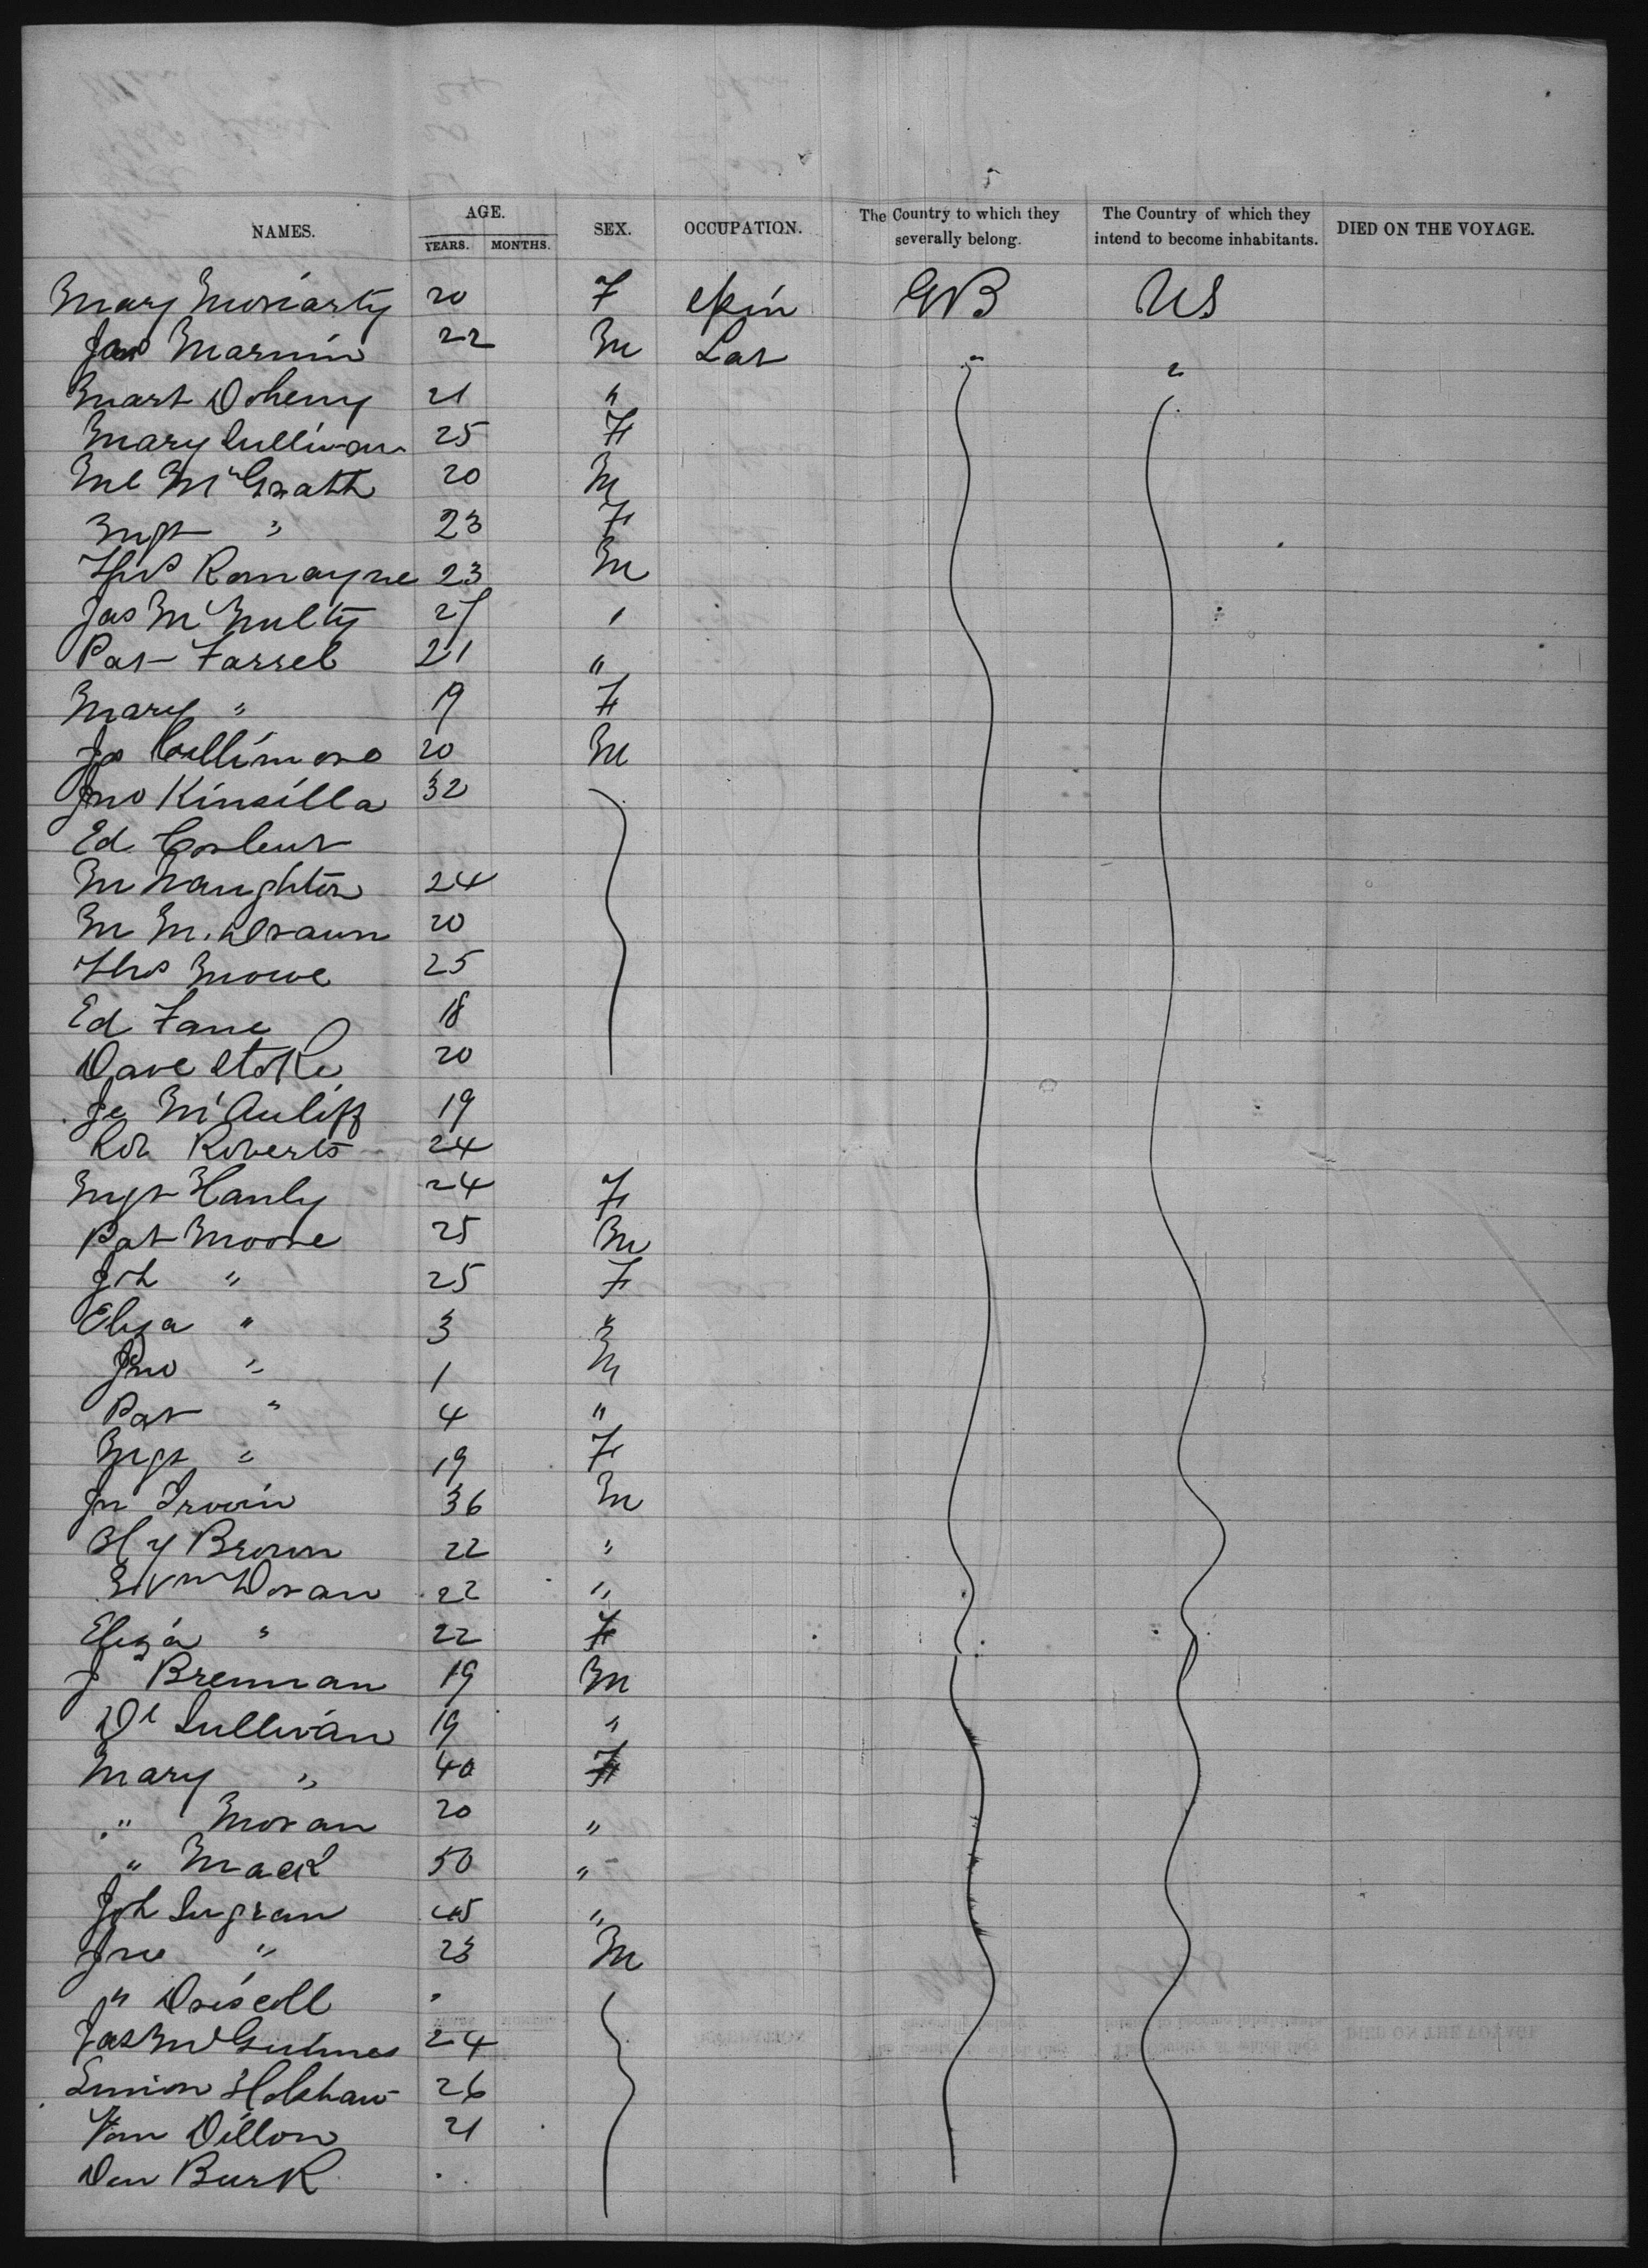 NAMES. AGE. YEARS. MONTHS. SEX. OCCUPATION. The Country to which they severally belong. The Country of which they intend to become inhabitants. DIED ON THE VOYAGE.
Mary Moriarty 20 F Spin GB US
Jas Marnin 22 M Lab " "
Mart Doheny 21 "
Mary Sullivan 25 F
Ml McGrath 20 M
Mgt " 23 F
Thos Romayne 23 M
Jas McNulty 27 "
Pat Farrel 21 "
Mary " 19 F
Jas Cullimore 20 M
Jno Kinsilla 32
Ed
M Naughton 24
M 20
Thos Mowe 25
Ed Fane 18
Dave Stoke 20
Je McAuliff 19
Rob Roberts 24
Mgt Hanly 24 F
Pat Moore 25 M
Joh " 25 F
Eliza " 3 "
Jno " 1 M
Pat " 4 "
Mgt " 19 F
Jn Irwin 36 M
Hy Brown 22 "
Wm Doran 22 "
Eliza " 22 F
J Brennan 19 M
Dl Sullivan 19 "
Mary " 40 F
" Moran 20 "
" Mack 50 "
Joh Sugran 45 "
Jno " 23 M
" Driscoll "
Jas 24
Simion Holshaw 26
Wm Dillon 21
Dan Burk "